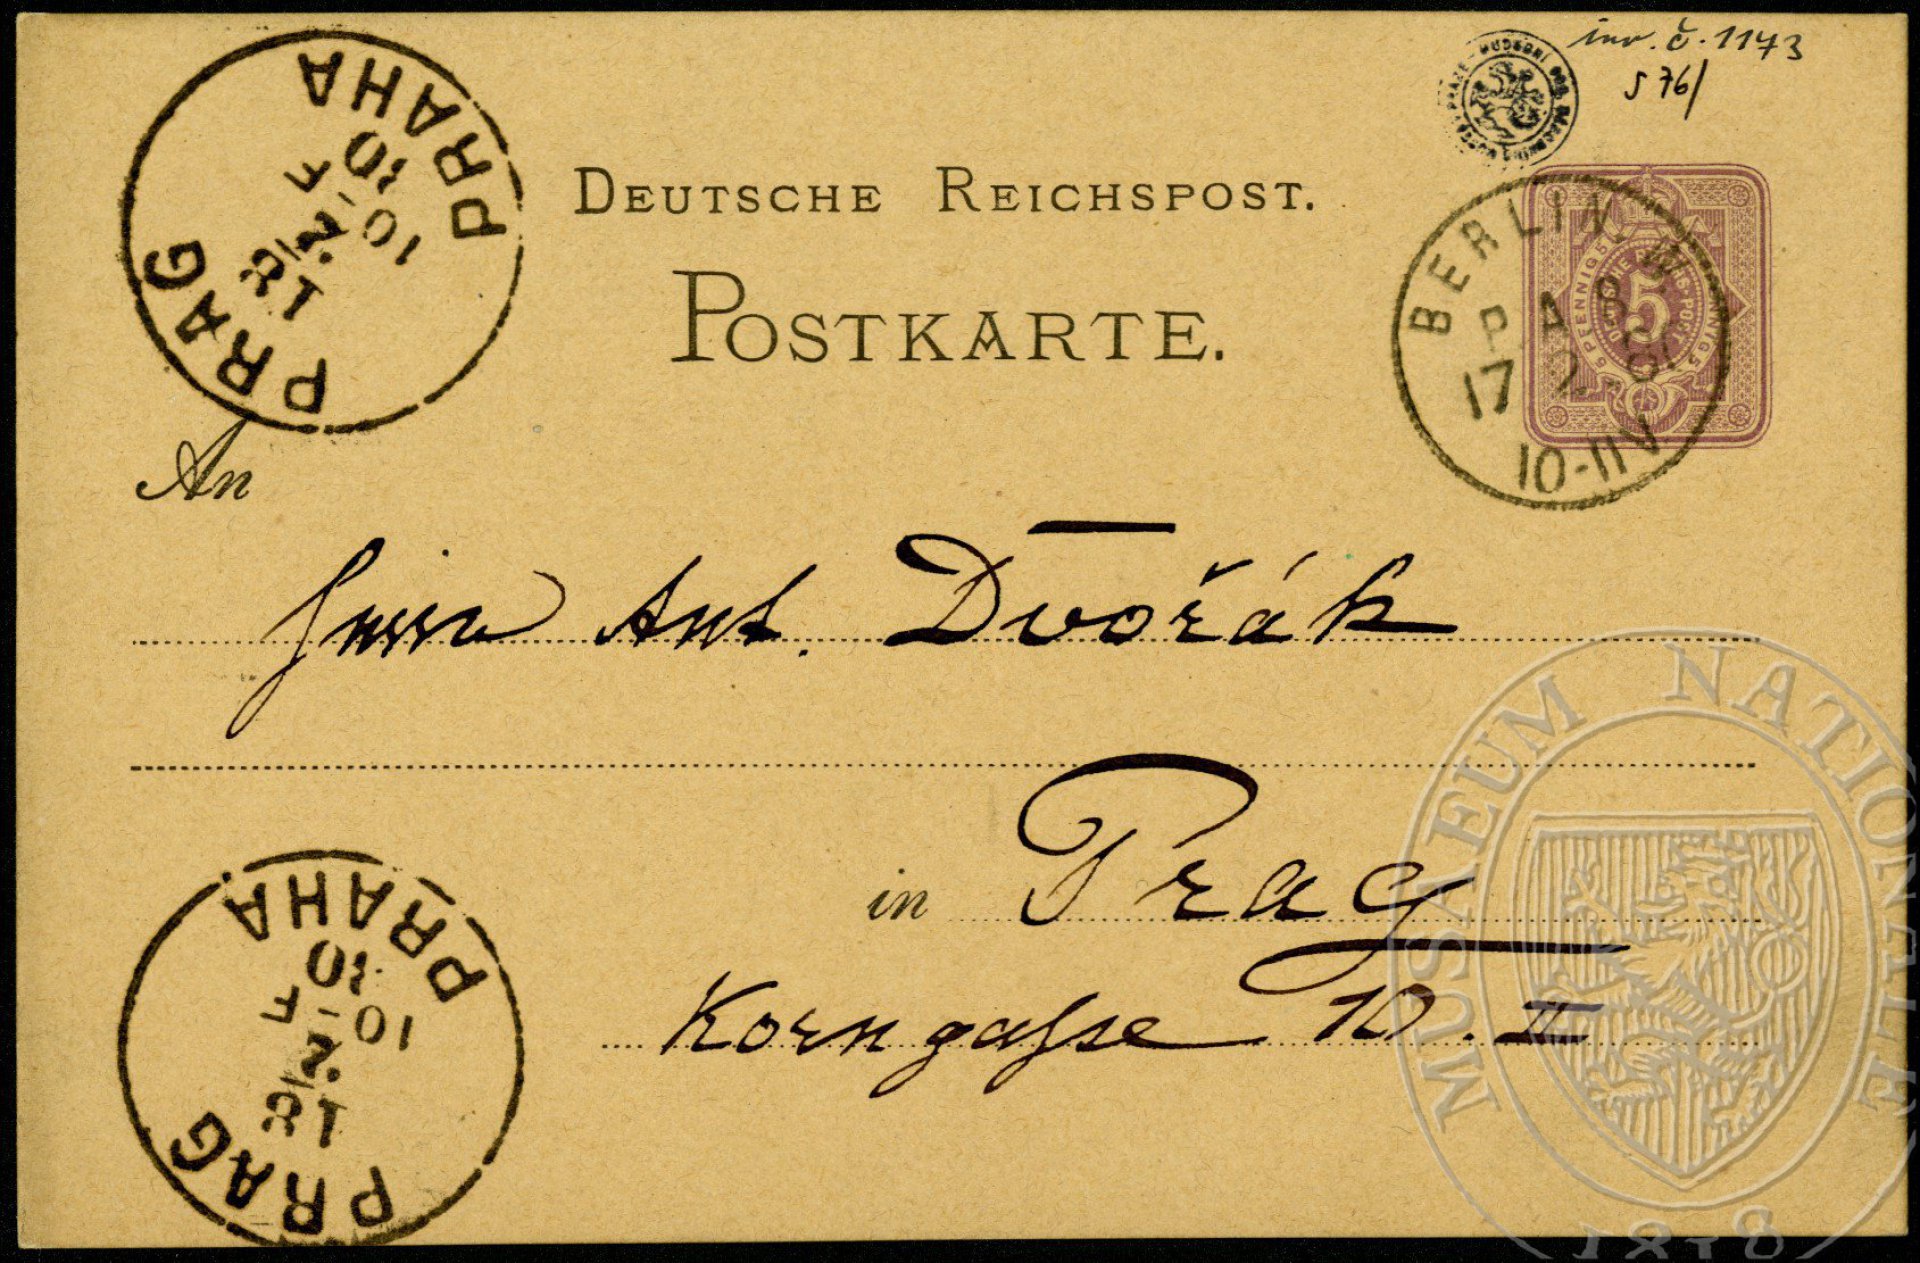 inv. č. 1173
S 76/
DEUTSCHE REICHSPOST.
POSTKARTE.
BERLIN. W
P. A. 8
17 2 81
10-11V
5 PFENNIG 5
5
PRAG PRAHA
18
2
10-
F
An
Herrn Ant. Dvořák
in Prag
Korngasse 10. II
PRAG PRAHA.
18
2
10-
F
MUSAEUM NATIONALE
1818